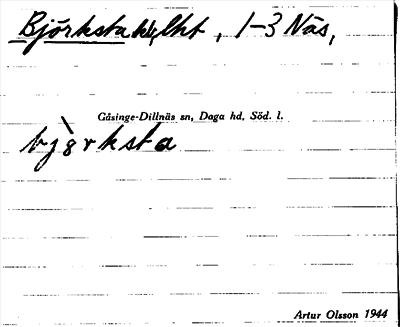 Björksta, lht, 1-3 Näs,
Gåsinge-Dillnäs sn, Daga hd, Söd. l.
bjö̀rksta
Artur Olsson 1944